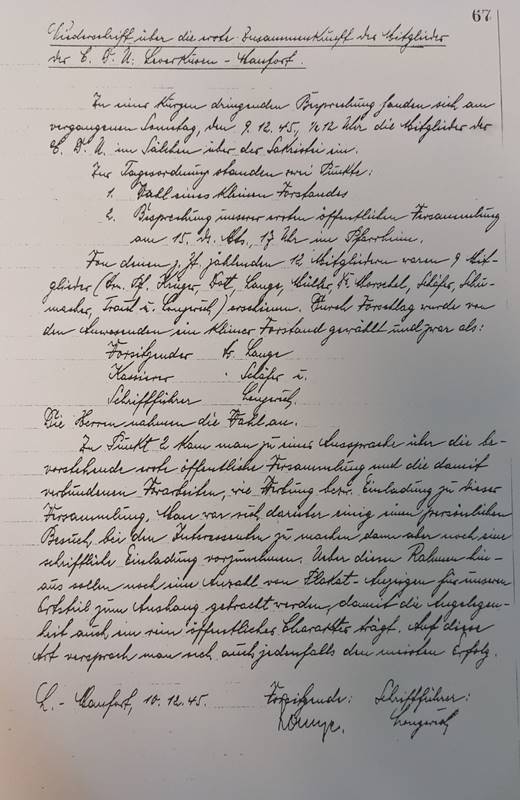 67
Niederschrift über die erste Zusammenkunft der Mitglieder
der C. D. U. Leverkusen - Manfort.
Zu einer kurzen dringenden Besprechung fanden sich am
vergangenen Sonntag, den 9. 12. 45, 1/2 12 Uhr die Mitglieder der
C. D. U. im Sälchen über der Sakristei ein.
Zur Tagesordnung standen zwei Punkte:
1. Wahl eines kleinen Vorstandes
2. Besprechung unserer ersten öffentlichen Versammlung
am 15. ds. Mts., 17 Uhr im Pfarrheim.
Von denen z. Zt. zählenden 12 Mitgliedern waren 9 Mit-
glieder (Krüger, Dott, Lange, Müller, Schäfer, Schu-
macher, u. Lengerich) erschienen. Durch Vorschlag wurde von
den Anwesenden ein kleiner Vorstand gewählt und zwar als:
Vorsitzender Hr. Lange
Kassierer " Schäfer u.
Schriftführer Lengerich.
Die Herren nahmen die Wahl an.
Zu Punkt 2 kam man zu einer Aussprache über die be-
vorstehende erste öffentliche Versammlung und die damit
verbundenen Vorarbeiten, wie Werbung bezw. Einladung zu dieser
Versammlung. Man war sich darüber einig einen persönlichen
Besuch bei den Interessenten zu machen dann aber noch eine
schriftliche Einladung vorzunehmen. Ueber diesen Rahmen hin-
aus sollen noch eine Anzahl von Plakat-Anzeigen für unseren
Ortsteil zum Aushang gebracht werden, damit die Angelegen-
heit auch einen rein öffentlichen Charakter trägt. Auf diese
Art versprach man sich auch jedenfalls den meisten Erfolg.
L. - Manfort, 10. 12. 45. Vorsitzende: Schriftführer:
Lange. Lengerich